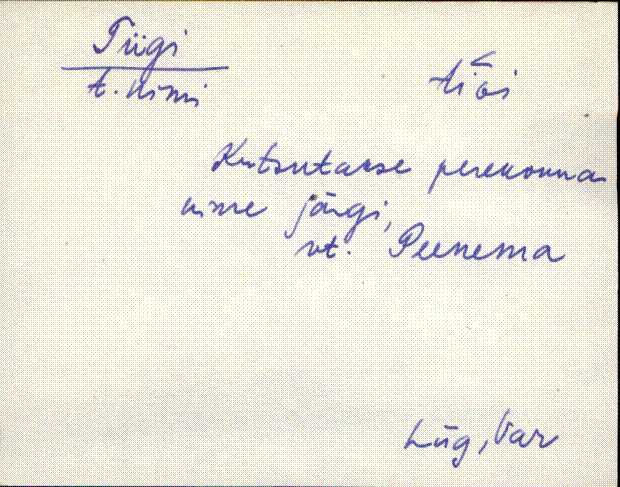 Tiigi
t. nimi
Kutsutakse perekonna
nime järgi,
vt. Peenema
Lüg, Var